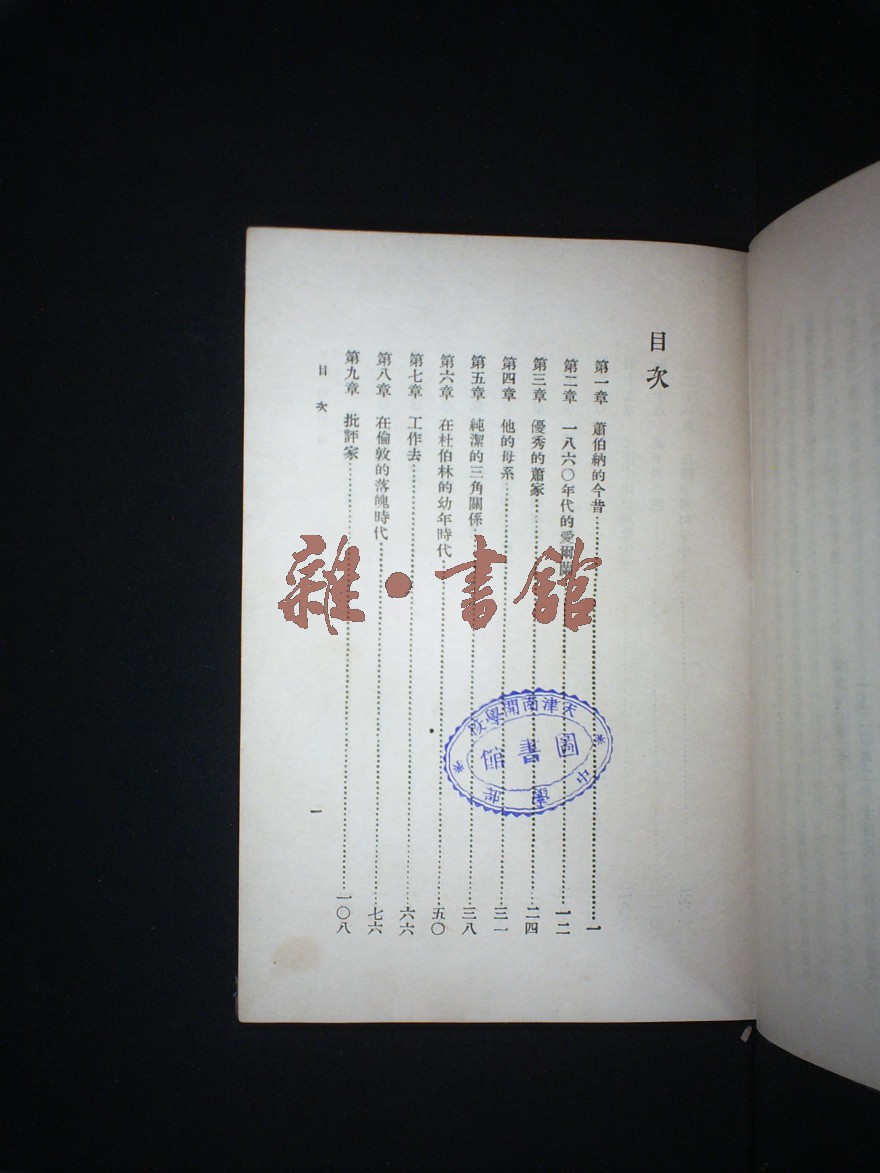 目次
第一章 蕭伯納的今昔 一
第二章 一八六〇年代的愛爾蘭 一二
第三章 優秀的蕭家 二四
第四章 他的母系 三一
第五章 純潔的三角關係 三八
第六章 在杜伯林的幼年時代 五〇
第七章 工作去 六六
第八章 在倫敦的落魄時代 七六
第九章 批評家 一〇八
目次
一
雜·書館
天津南開學校
圖書館
中學